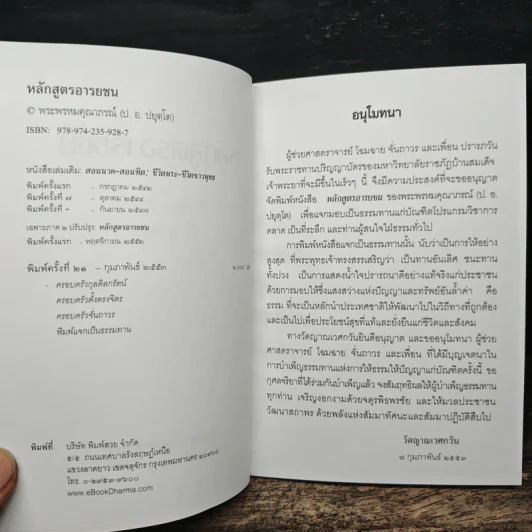 หลักสูตรอารยชน
© พระพรหมคุณาภรณ์ (ป. อ. ปยุตฺโต)
ISBN: 978-974-235-928-7
หนังสือเล่มเดิม: สอนนาค-สอนทิด: ชีวิตพระ-ชีวิตชาวพุทธ
พิมพ์ครั้งแรก - กรกฎาคม
พิมพ์ครั้งที่ ๗ - ตุลาคม
พิมพ์ครั้งที่ - กันยายน
เฉพาะภาค ๒ ปรับปรุง: หลักสูตรอารยชน
พิมพ์ครั้งแรก - พฤศจิกายน ๒๕๕๒
พิมพ์ครั้งที่ ๒๑ – กุมภาพันธ์ ๒๕๕๓
- ครอบครัวกุลดิลกรัตน์
ครอบครัวตั้งตรงจิตร
ครอบครัวจั่นถาวร
พิมพ์แจกเป็นธรรมทาน
พิมพ์ที่ บริษัท พิมพ์สวย จำกัด
๕/๕ ถนนเทศบาลรังสฤษฏ์เหนือ
แขวงลาดยาว เขตจตุจักร กรุงเทพมหานคร ๑๐๙๐๐
โทร. ๐-๒๙๕๓-๙๖๐๐
www.eBookDharma.com
อนุโมทนา
ผู้ช่วยศาสตราจารย์ โฉมฉาย จั่นถาวร และเพื่อน ปรารภวัน
รับพระราชทานปริญญาบัตรของมหาวิทยาลัยราชภัฏบ้านสมเด็จ
เจ้าพระยาที่จะมีขึ้นในเร็วๆ นี้ จึงมีความประสงค์ที่จะขออนุญาต
จัดพิมพ์หนังสือ หลักสูตรอารยชน ของพระพรหมคุณาภรณ์ (ป. อ.
ปยุตฺโต) เพื่อแจกมอบเป็นธรรมทานแก่บัณฑิตโปรแกรมวิชาการ
ตลาด เป็นที่ระลึก และท่านผู้สนใจใฝ่ธรรมทั่วไป
การพิมพ์หนังสือแจกเป็นธรรมทานนั้น นับว่าเป็นการให้อย่าง
สูงสุด ที่พระพุทธเจ้าทรงสรรเสริญว่า เป็นทานอันเลิศ ชนะทาน
ทั้งปวง เป็นการแสดงน้ำใจปรารถนาดีอย่างแท้จริงแก่ประชาชน
ด้วยการมอบให้ซึ่งแสงสว่างแห่งปัญญาและทรัพย์อันล้ำค่า คือ
ธรรม ที่จะเป็นหลักนำประเทศชาติให้พัฒนาไปในวิถีทางที่ถูกต้อง
และเป็นไปเพื่อประโยชน์สุขที่แท้และยั่งยืนแก่ชีวิตและสังคม
ทางวัดญาณเวศกวันยินดีอนุญาต และขออนุโมทนา ผู้ช่วย
ศาสตราจารย์ โฉมฉาย จั่นถาวร และเพื่อน ที่ได้มีบุญเจตนาใน
การบำเพ็ญธรรมทานแห่งการให้ธรรมให้ปัญญาแก่บัณฑิตครั้งนี้ ขอ
กุศลจริยาที่ได้ร่วมกันบำเพ็ญแล้ว จงสัมฤทธิผลให้ผู้บำเพ็ญธรรมทาน
ทุกท่าน เจริญงอกงามด้วยจตุรพิธพรชัย และให้มวลประชาชน
วัฒนาสถาพร ด้วยพลังแห่งสัมมาทัศนะและสัมมาปฏิบัติสืบไป
วัดญาณเวศกวัน
๘ กุมภาพันธ์ ๒๕๕๓